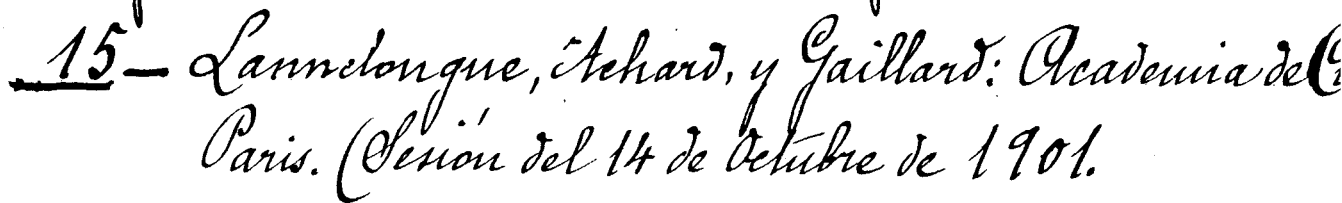 15— Lannelongue, Achard, y Gaillard: Academia de
Paris. (Sesión del 14 de Octubre de 1901.